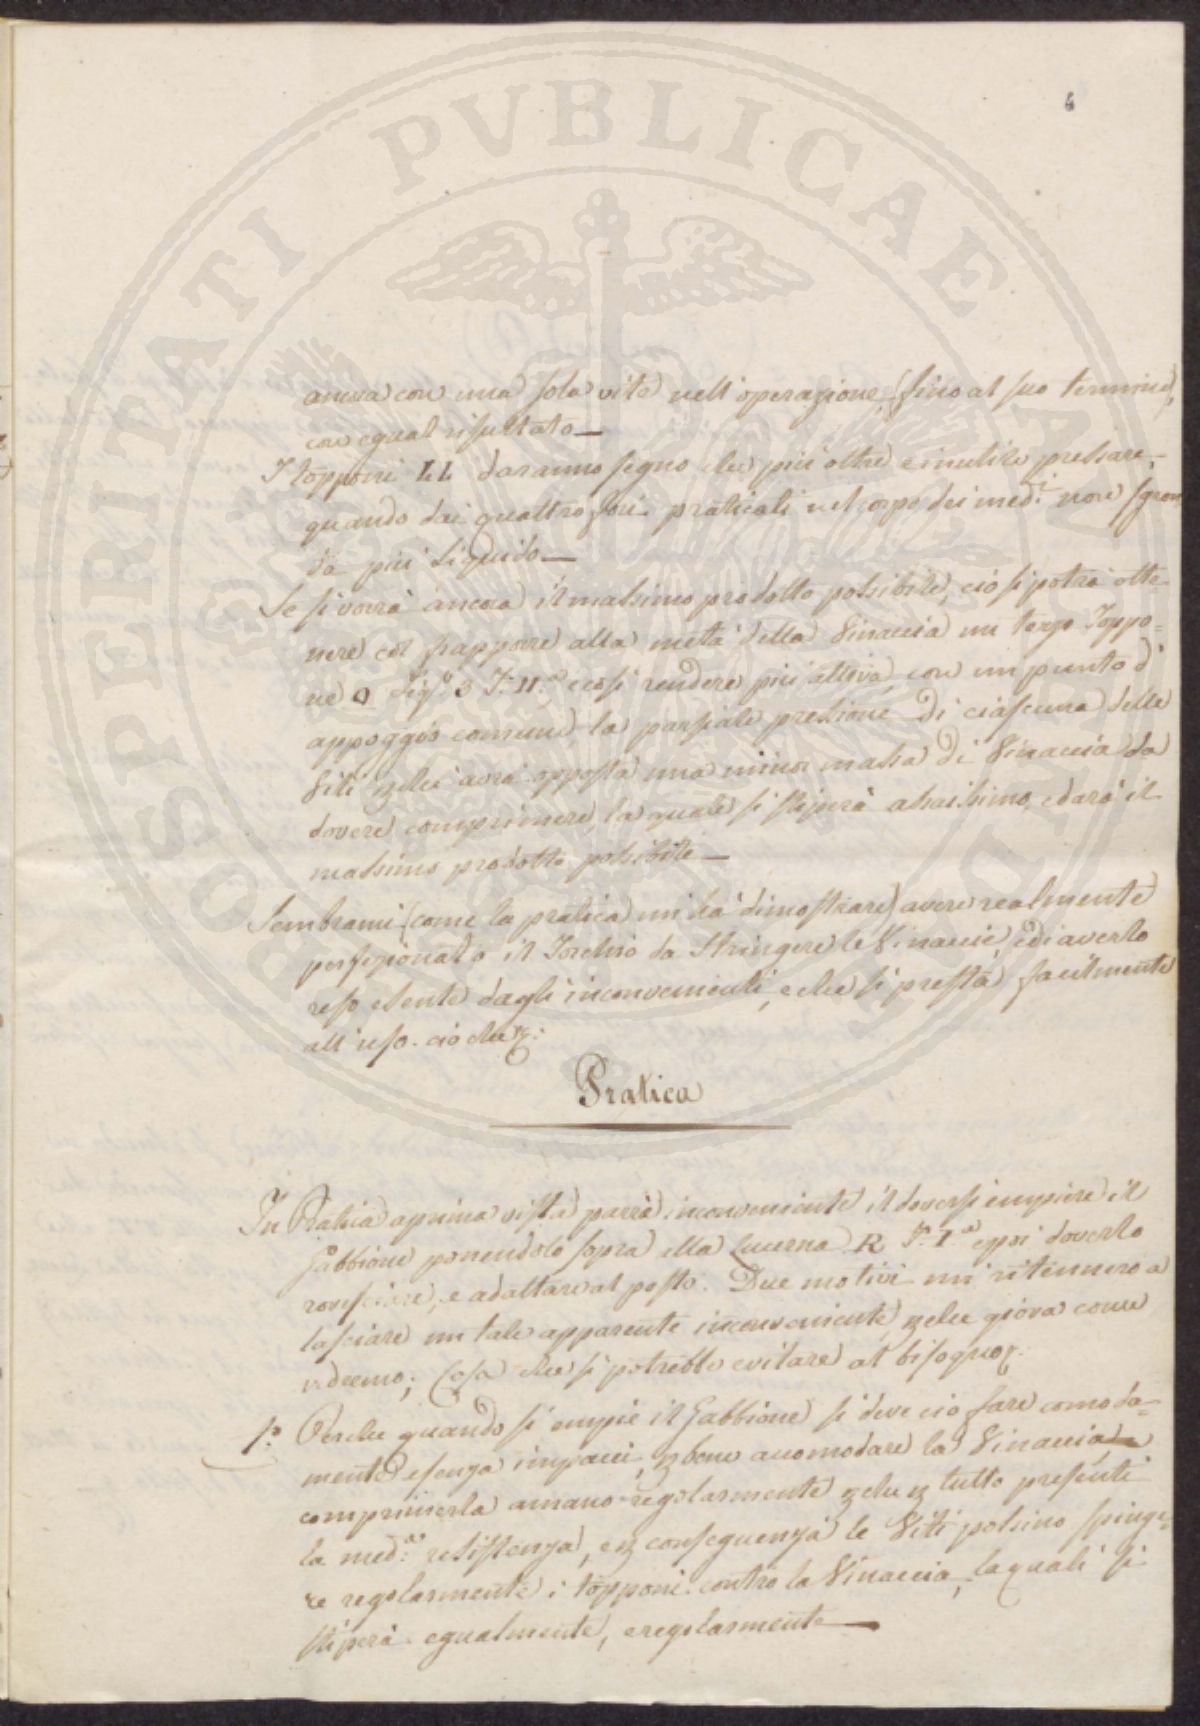 PROSPERITATI PVBLICAE AVGENDAE
4
ancora con una sola vite nell'operazione, (fino al suo termine),
con egual risultato —
I topponi LL daranno segno che più oltre è inutile pressare,
quando dai quattro fori praticati nel corpo dei med.i non sgron
da più liquido —
Se si vorrà ancora il massimo prodotto possibile, ciò si potrà otte-
nere col frapporre alla metà della Vinaccia un terzo Toppo=
ne O Fig.a 3 T. II.a e così rendere più attiva, con un punto d'
appoggio comune la parziale pressione di ciascuna delle
Viti che avrà opposta una minor massa di Vinaccia da
dovere comprimere, la quale si stiperà assaissimo, e darà il
massimo prodotto possibile —
Sembrami (come la pratica mi ha dimostrare) avere realmente
perfezionato il Torchio da Stringere le Vinaccie, ed averlo
reso esente dagli inconvenienti, e che si presta facilmente
all'uso. ciò che
Pratica
In Pratica a prima vista parrà inconveniente il doversi empiere il
Gabbione ponendolo sopra alla Lucerna R T. I.a e poi doverlo
rovesciare, e adattare al posto. Due motivi mi ritennero a
lasciare un tale apparente inconveniente, che giova come
vedremo; Cosa che si potrebbe evitare al bisogno.
1.o Perche quando si empie il Gabbione si deve ciò fare comoda=
mente e senza impacci, bene accomodare la Vinaccia,
comprimerla a mano regolarmente tutto presenti
la med.a resistenza, e conseguenza le Viti possino spinge-
re regolarmente i topponi contro la Vinaccia, la quali si
stiperà egualmente, e regolarmente —